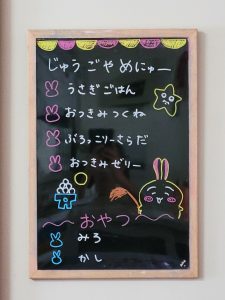 じゅうごやめにゅー
うさぎごはん
おつきみつくね
ぶろっこりーさらだ
おつきみゼリー
おやつ
みろ
かし